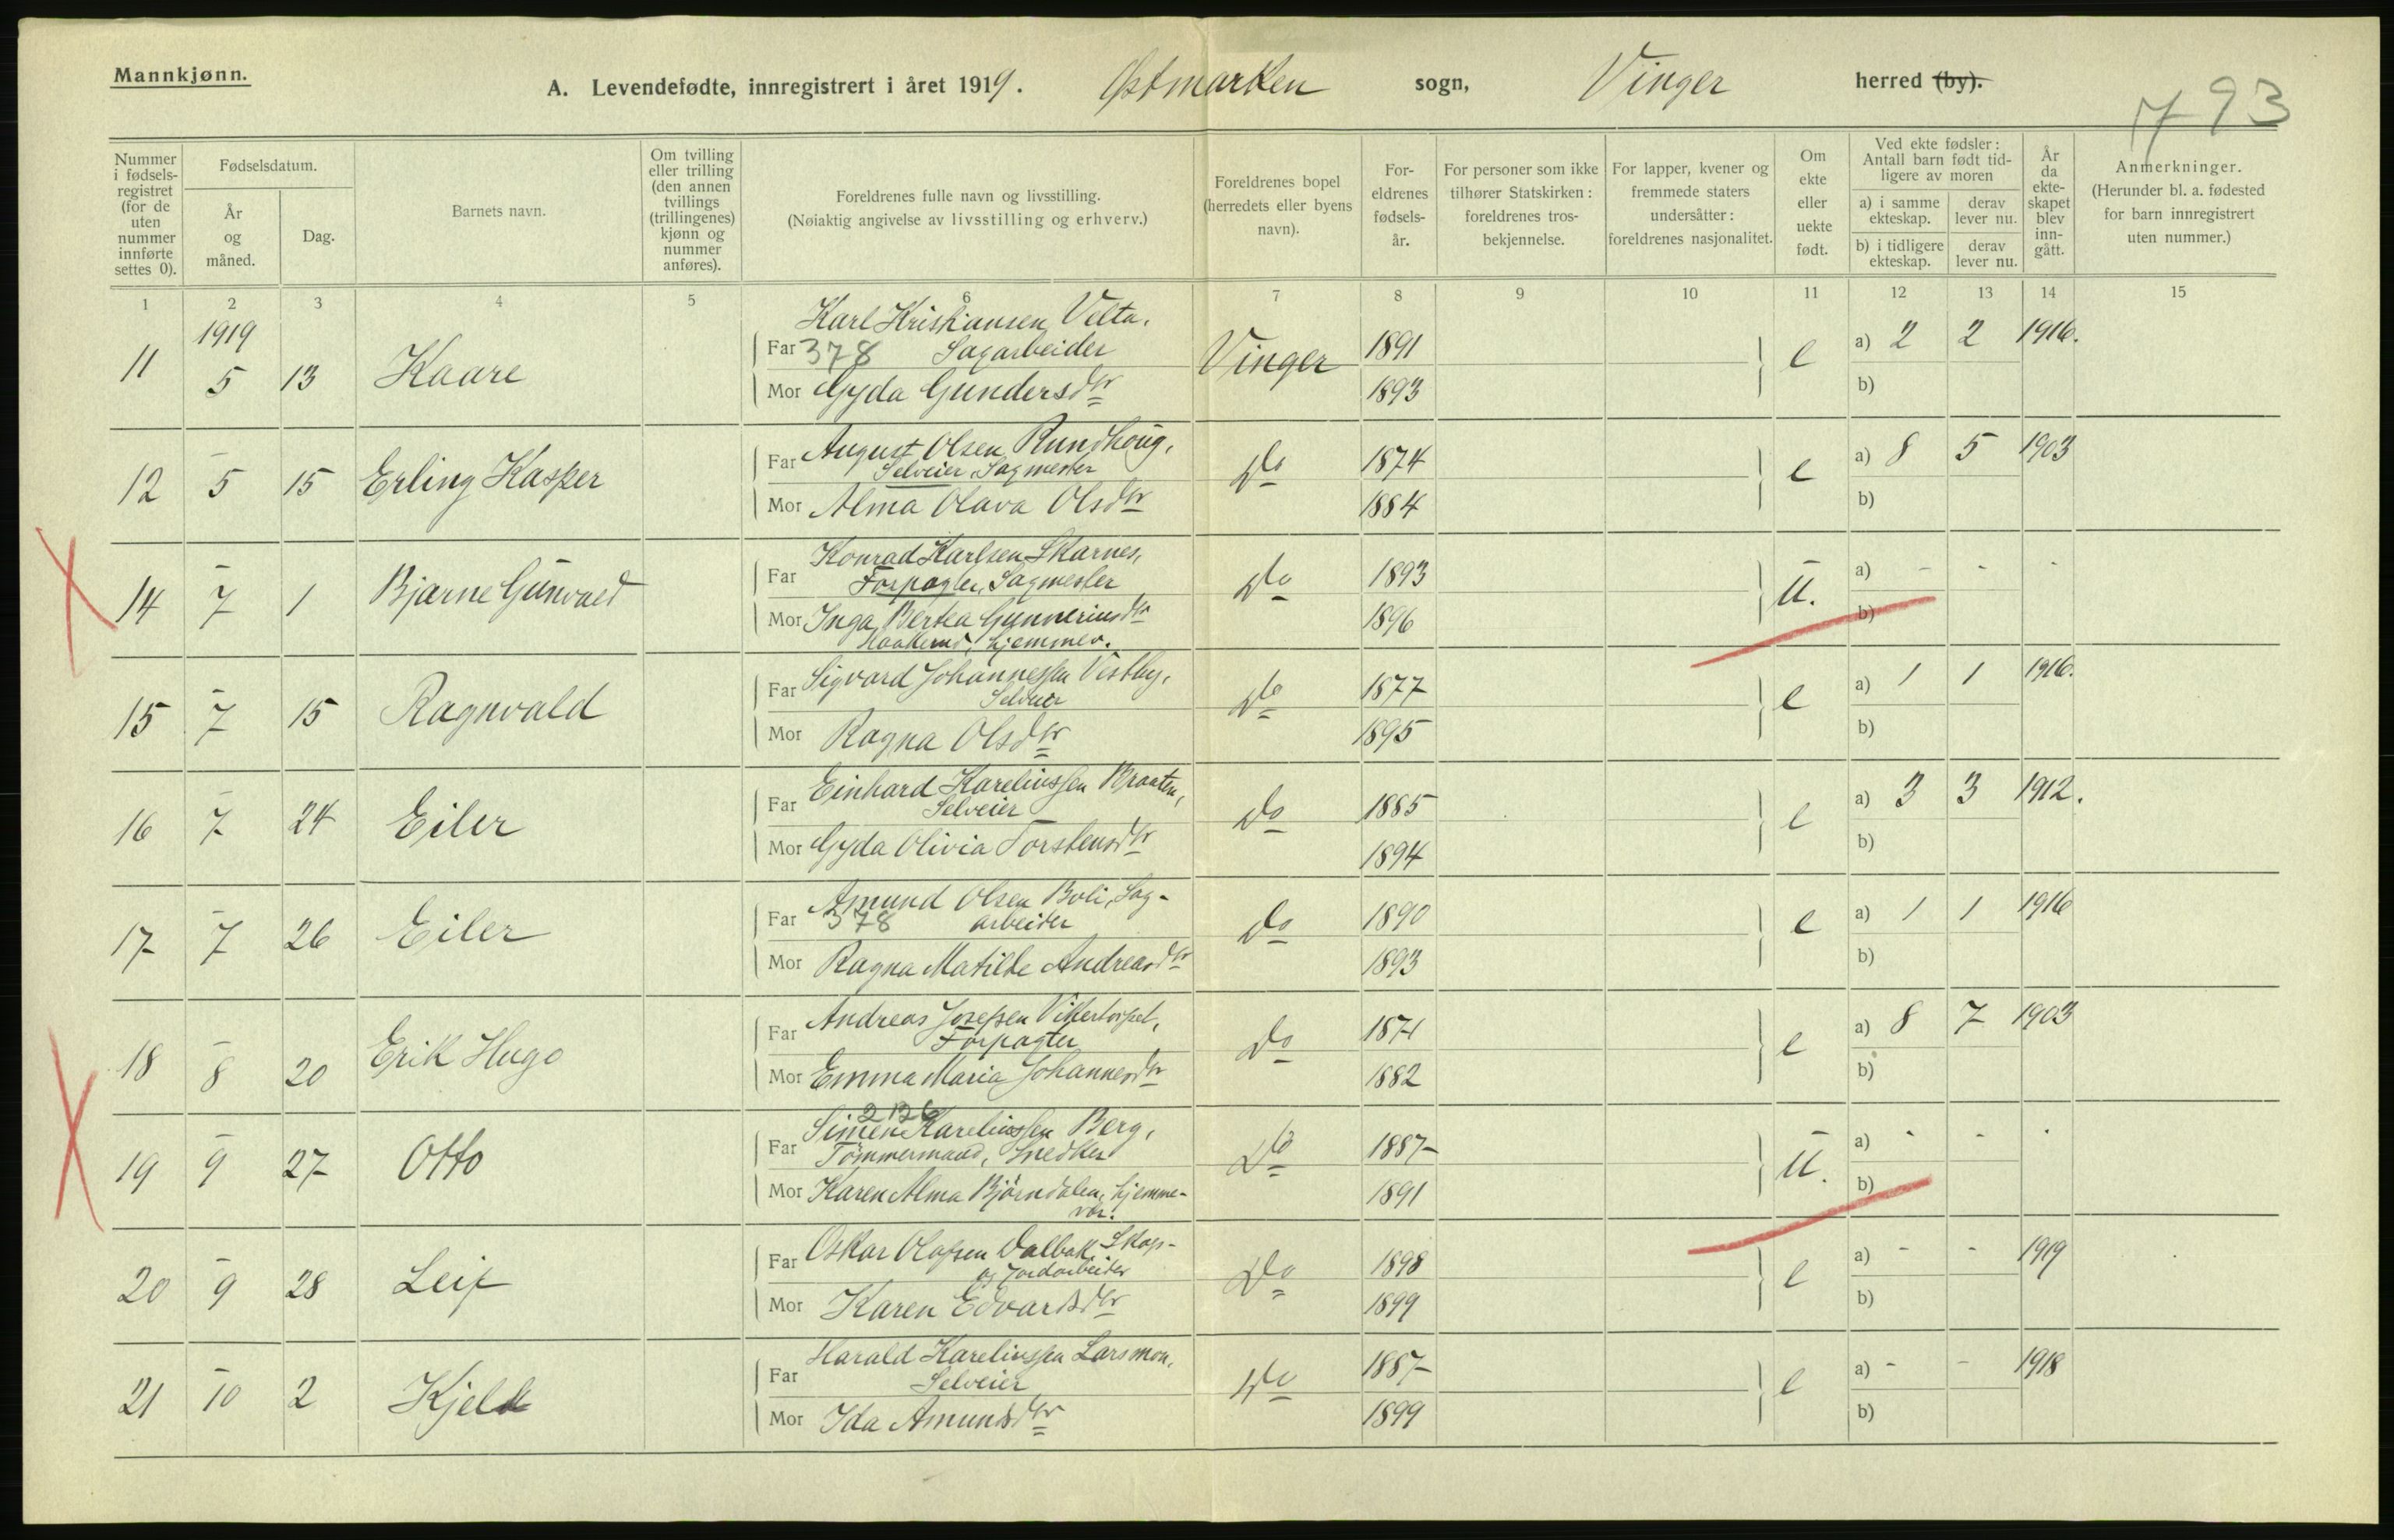 Mannkjønn.
A. Levendefødte, innregistrert i året 1919. Østmarken sogn, Vinger herred (by).
793
Nummer i fødselsregistret (for de uten nummer innførte settes 0).
Fødselsdatum.
År og måned.
Dag.
Barnets navn.
Om tvilling eller trilling (den annen tvillings (trillingenes) kjønn og nummer anføres).
Foreldrenes fulle navn og livsstilling.
(Nøiaktig angivelse av livsstilling og erhverv.)
Foreldrenes bopel (herredets eller byens navn).
Foreldrenes fødselsår.
For personer som ikke tilhører Statskirken: foreldrenes trosbekjennelse.
For lapper, kvener og fremmede staters undersåtter: foreldrenes nasjonalitet.
Om ekte eller uekte født.
Ved ekte fødsler: Antall barn født tidligere av moren
a) i samme ekteskap.
derav lever nu.
b) i tidligere ekteskap.
derav lever nu.
År da ekteskapet blev inngått.
Anmerkninger.
(Herunder bl. a. fødested for barn innregistrert uten nummer.)
1 2 3 4 5 6 7 8 9 10 11 12 13 14 15
1919
11 5 13 Kaare
Karl Kristiansen Velta,
Far 378 Sagarbeider Vinger 1891 e a) 2 2 1916.
Mor Gyda Gundersdtr 1893 b)
12 - 5 15 Erling Kasper
Far August Olsen Rundhoug,
Selveier, Sagmester Do 1874 e a) 8 5 1903
Mor Alma Olava Olsdtr 1884 b)
14 - 7 1 Bjarne Gunvald
Konrad Karlsen Skarnes,
Far Forpagter, Sagmester Do 1893 u. a) - - -
Mor Inga Bertea Gunneriusdtr 1896 b)
hjemmev.
15 - 7 15 Ragnvald
Far Sigvard Johannessen Vestby,
Selveier Do 1877 e a) 1 1 1916.
Mor Ragna Olsdtr 1895 b)
16 - 7 24 Eiler
Far Einhard Kareliussen Braaten,
Selveier Do 1885 e a) 3 3 1912.
Mor Gyda Olivia Torstensdtr 1894 b)
17 - 7 26 Eiler
Amund Olsen Boli, Sag-
Far 378 arbeider Do 1890 e a) 1 1 1916
Mor Ragna Matilde Andreasdtr 1893 b)
18 - 8 20 Erik Hugo
Far Andreas Josefsen Vikertorpet,
Forpagter Do 1871 e a) 8 7 1903
Mor Emma Maria Johannesdtr 1882 b)
19 - 9 27 Otto
Simen Kareliussen Berg,
Far Tømmermand, Snedker Do 1887 u. a) - - -
Mor Karen Alma Bjørndalen, hjemme- 1891 b)
vær.
20 - 9 28 Leif
Far Oskar Olafsen Dalbak, Skog-
og Jordarbeider Do 1898 e a) - - 1919
Mor Karen Edvardsdtr 1899 b)
21 - 10 2 Kjeld
Harald Kareliussen Larsmon,
Far Selveier Do 1887 e a) - - 1918
Mor Ida Amundsdtr 1899 b)